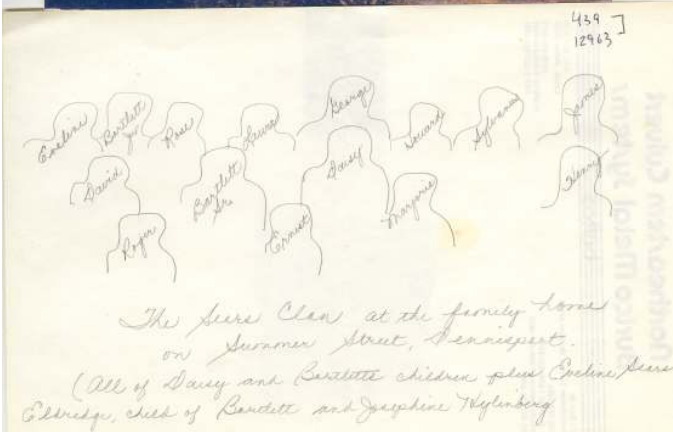 439
12963
Eveline Bartlett Jr Rose Laura George Howard Sylvanus James
David Bartlett Sr. Daisy Marjorie Henry
Roger Ernest
The Sears Clan at the family home
on Summer Street, Dennisport.
(All of Daisy and Bartletts children plus Eveline Sears
Eldredge, child of Bartlett and Josephine Wylinberg